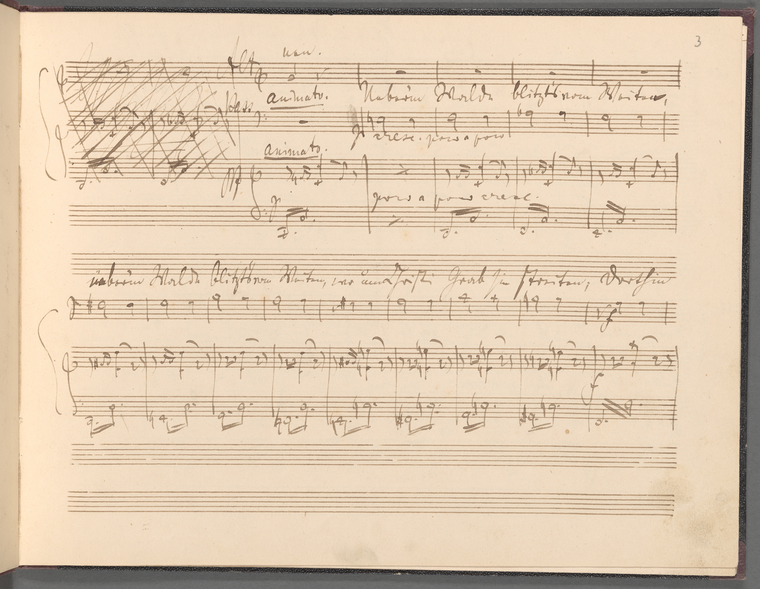 3
nen.
Alt
animato. Ueberm Walde blitzts vom Weiten,
p cresc. poco a poco
animato.
pp
p poco a poco cresc.
ueberm Walde blitzts vom Weiten, wo um Christi Grab sie streiten; Dorthin
f
f